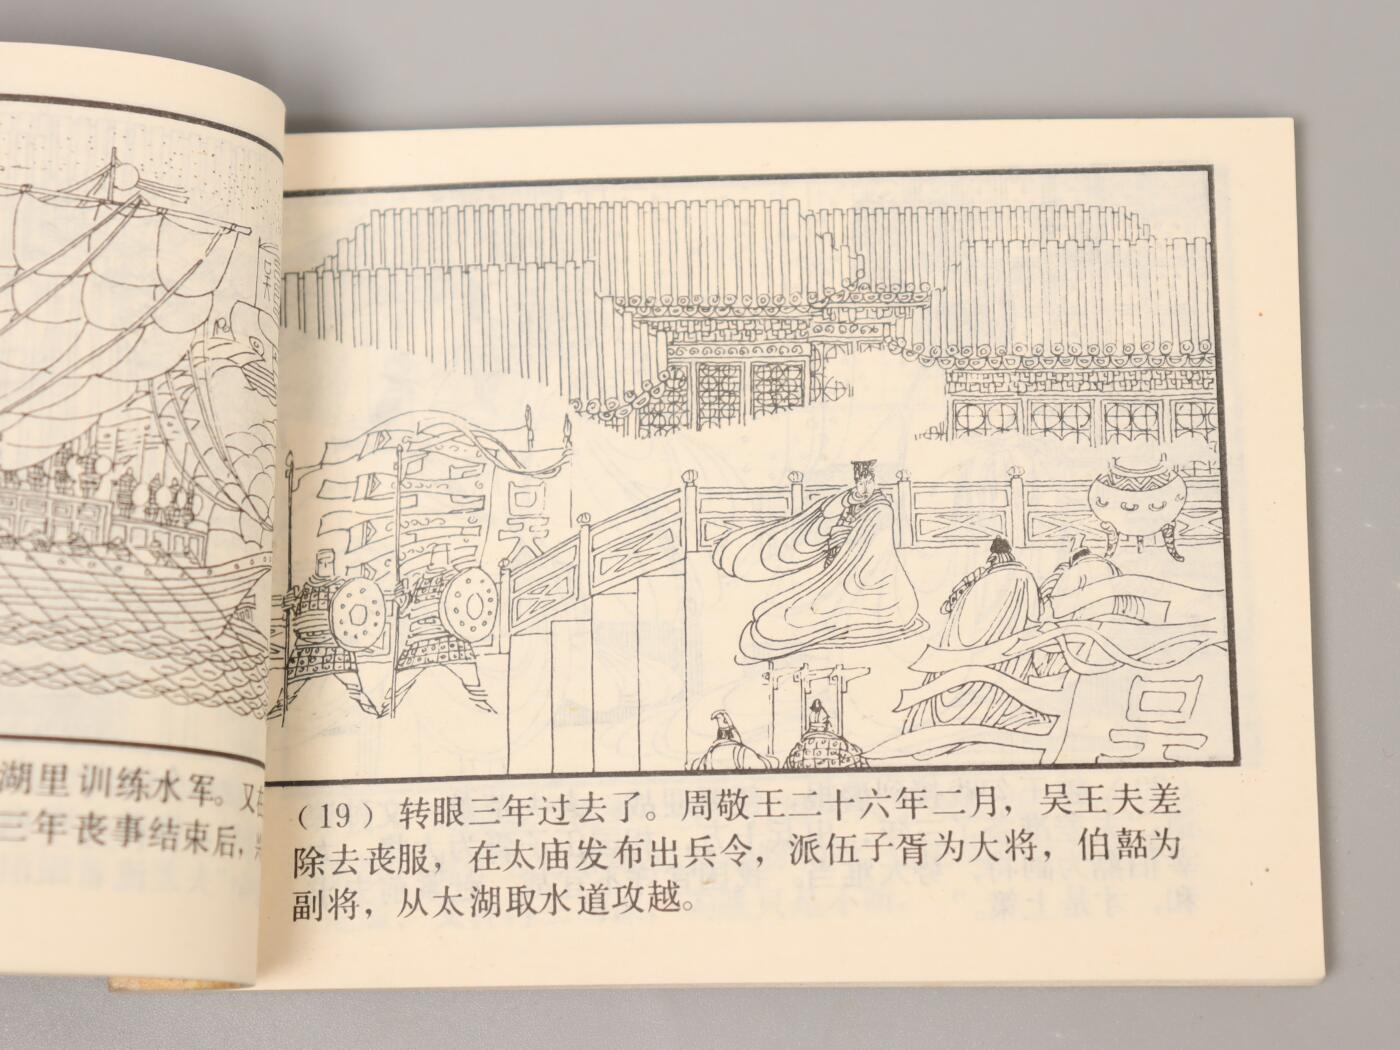 湖里训练水军。又在
三年丧事结束后，
吴
吴
（19）转眼三年过去了。周敬王二十六年二月，吴王夫差
除去丧服，在太庙发布出兵令，派伍子胥为大将，伯嚭为
副将，从太湖取水道攻越。